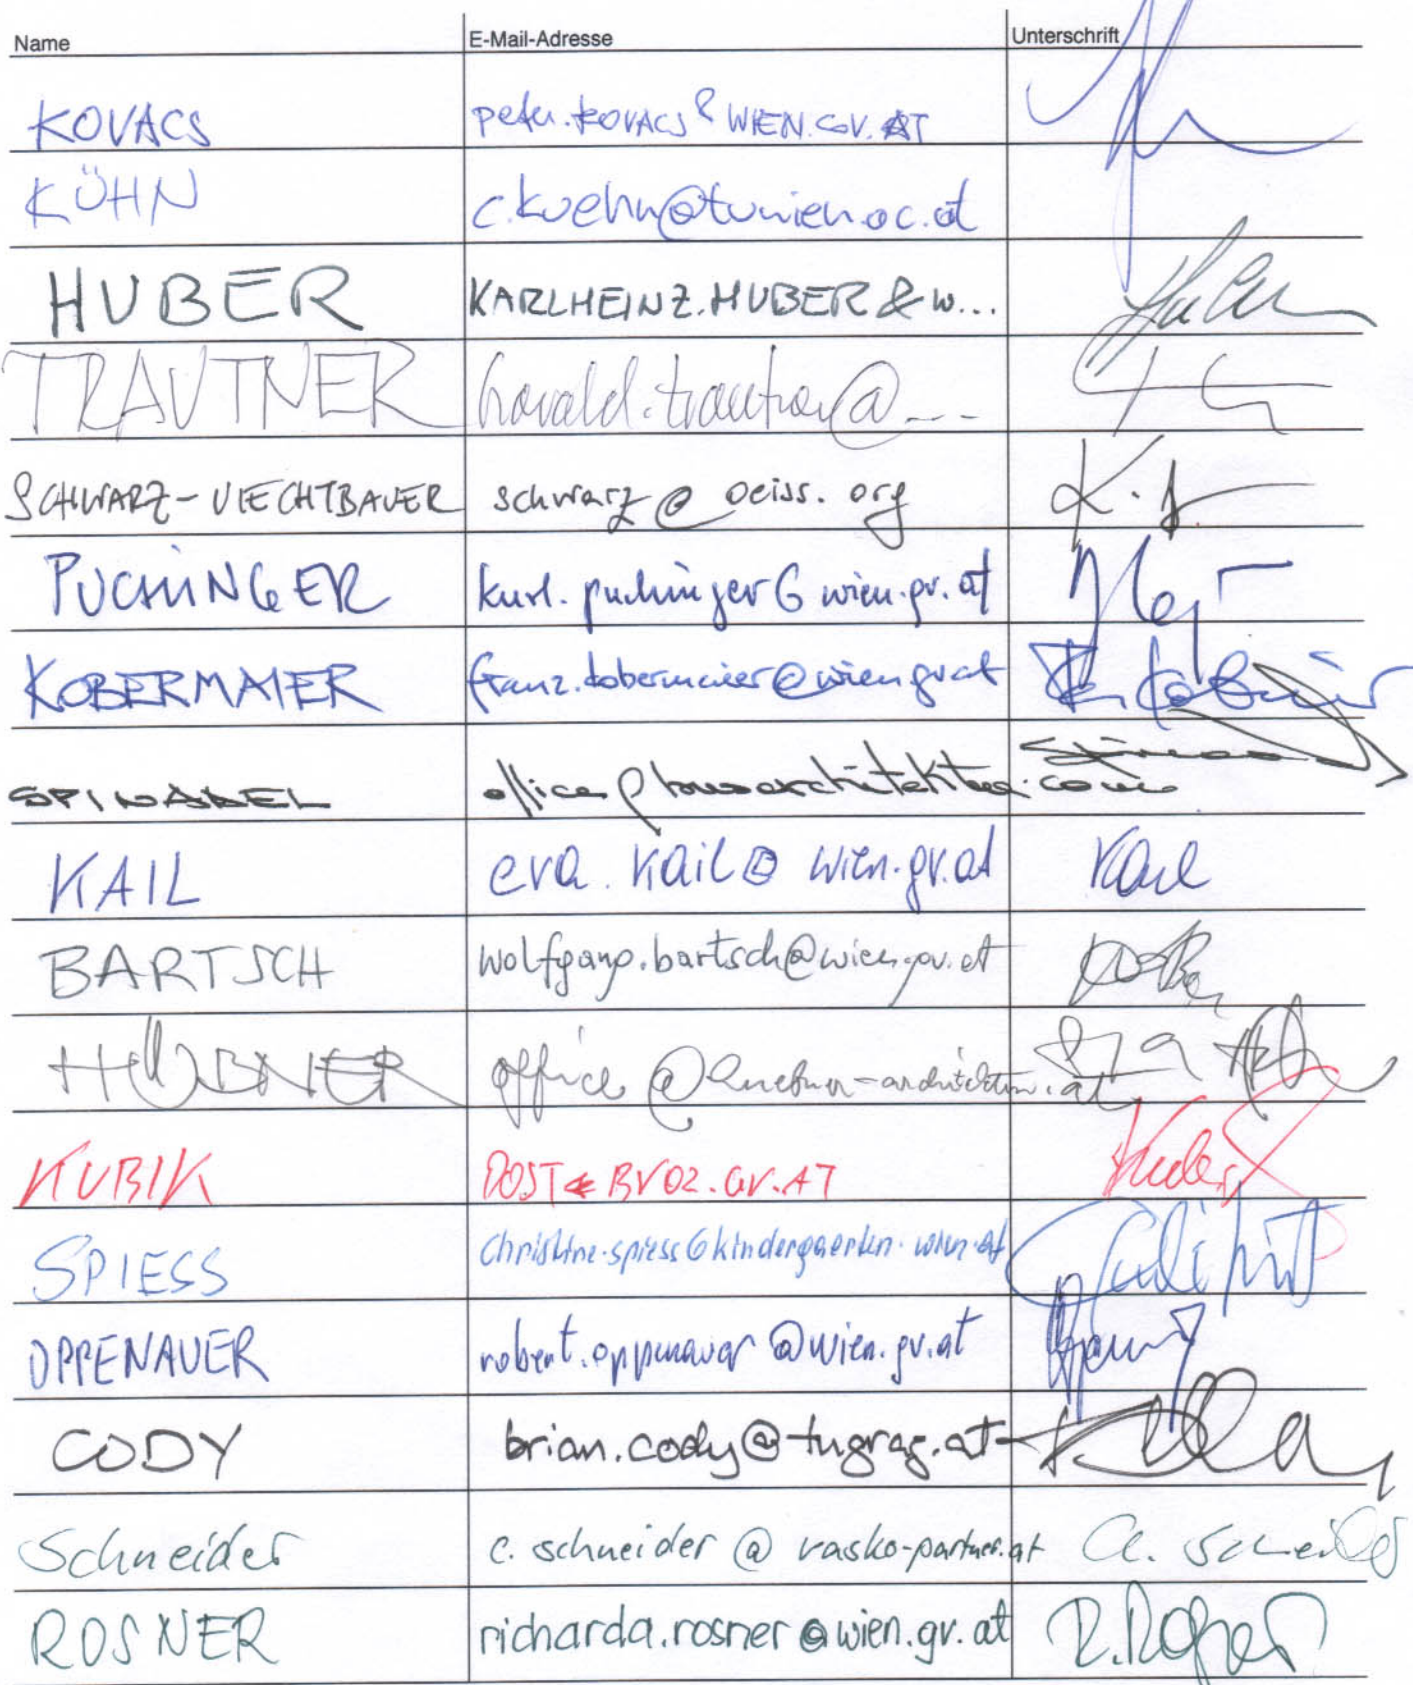 Name E-Mail-Adresse Unterschrift
KOVACS peter.KOVACS@WIEN.GV.AT
KÜHN c.kuehn@tuwien.ac.at
HUBER KARLHEINZ.HUBER&W...
TRAUTNER harald.trautner@---
SCHWARZ-VIECHTBAUER schwarz@oeiss.org
PUCHINGER kurt.puchinger@wien.gv.at
KOBERMAIER franz.kobermaier@wien.gv.at
SPINADEL
KAIL eva.kail@wien.gv.at Kail
BARTSCH wolfgang.bartsch@wien.gv.at
HÜBNER office@huebner-architekten.at
KUBIK POST@BV02.GV.AT
SPIESS christine.spiess@kindergaerten.wien.at
OPPENAUER robert.oppenauer@wien.gv.at
CODY brian.cody@tugraz.at
Schneider c.schneider@vasko-partner.at
ROSNER richarda.rosner@wien.gv.at R. Rosner